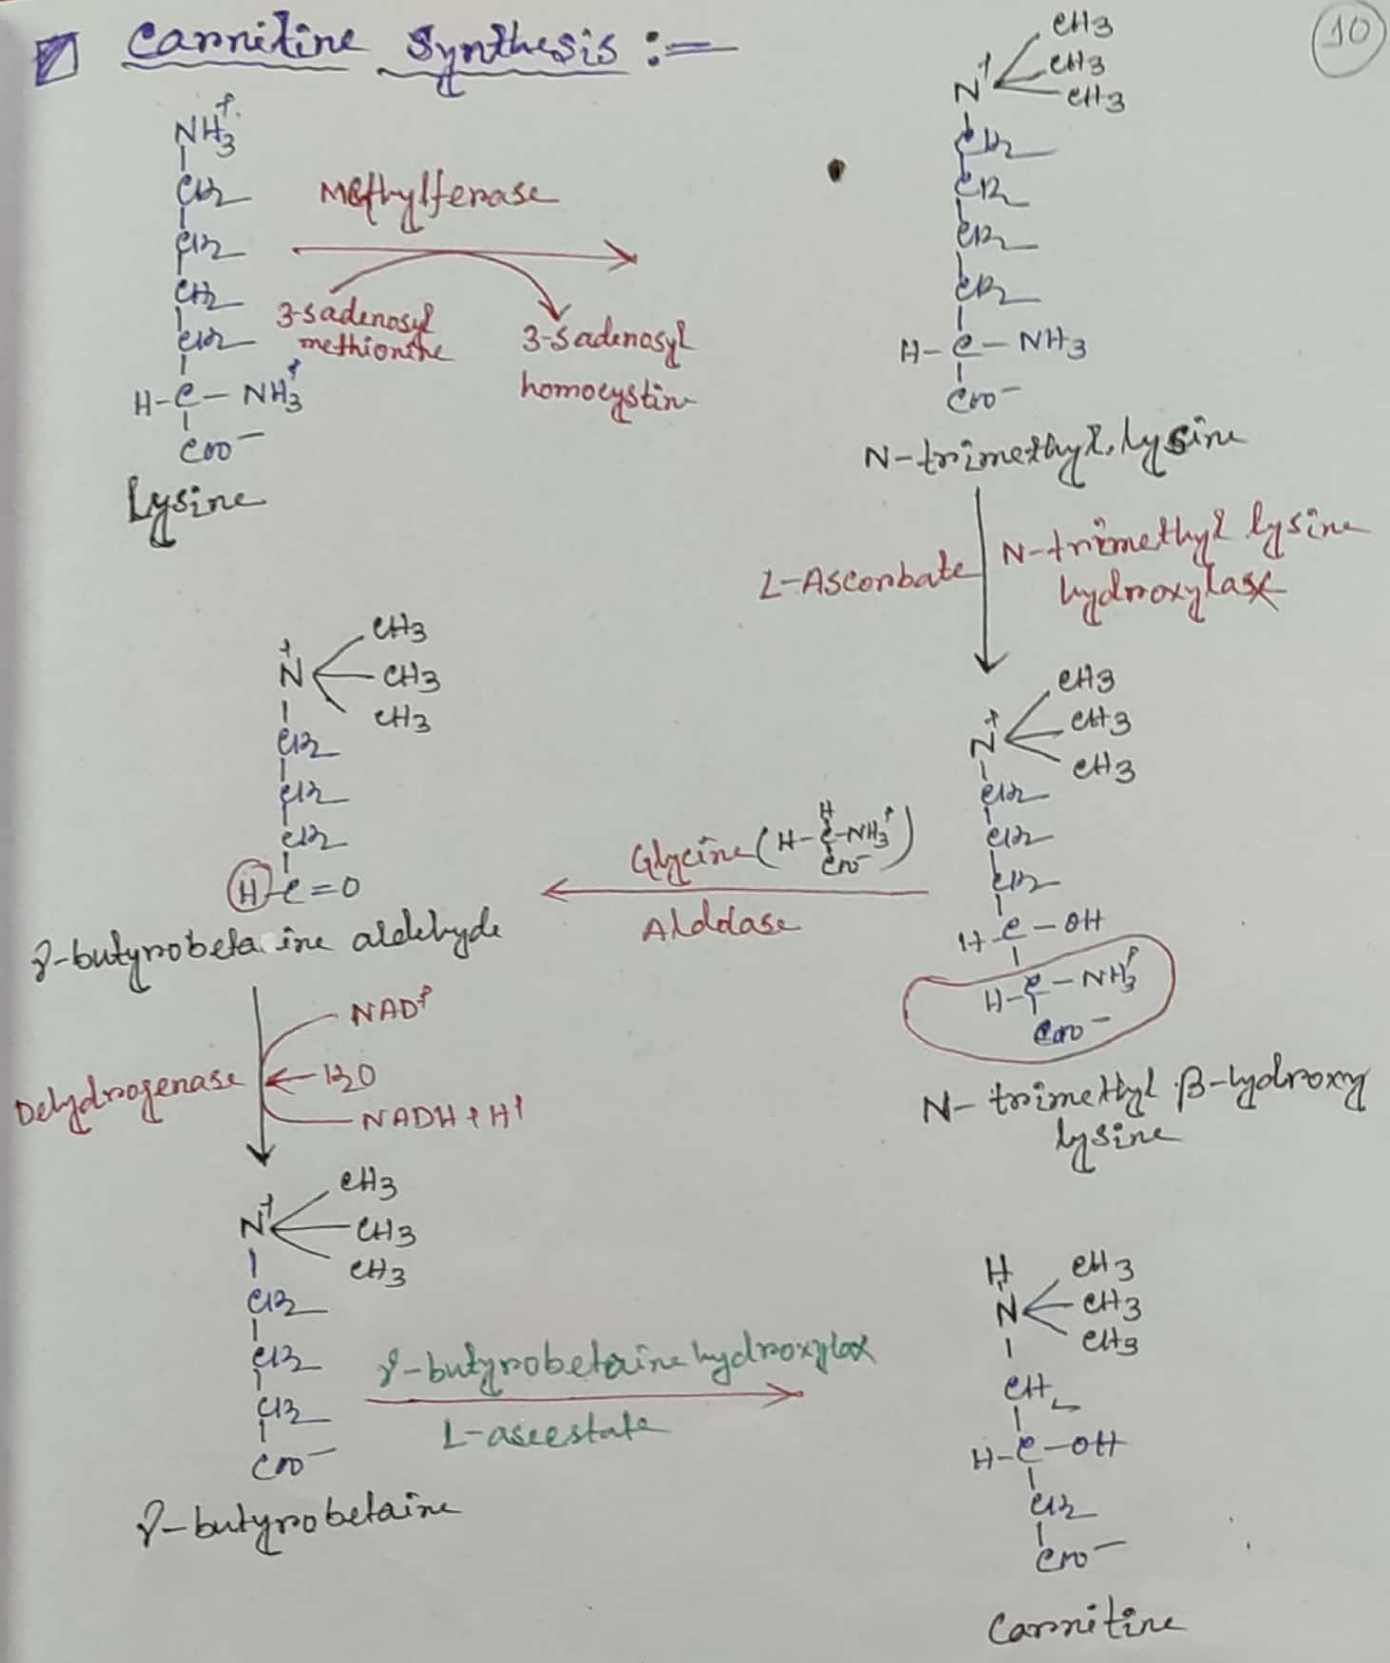 Carnitine Synthesis :-
10
NH3+
CH2
CH2
CH2
CH2
H-C-NH3+
COO-
Lysine
Methylferase
3-S adenosyl
methionine
3-S adenosyl
homocystin
N+
CH3
CH3
CH3
CH2
CH2
CH2
CH2
H-C-NH3
COO-
N-trimethyl lysine
L-Ascorbate
N-trimethyl lysine
hydroxylase
N+
CH3
CH3
CH3
CH2
CH2
CH2
H-C-OH
H-C-NH3+
COO-
N-trimethyl β-hydroxy
lysine
Glycine (H-C-NH3+)
H
COO-
Aldolase
N+
CH3
CH3
CH3
CH2
CH2
CH2
H-C=O
γ-butyrobetaine aldehyde
NAD+
Dehydrogenase
H2O
NADH + H+
N+
CH3
CH3
CH3
CH2
CH2
CH2
COO-
γ-butyrobetaine
γ-butyrobetaine hydroxylase
H
N
CH3
CH3
CH3
CH2
H-C-OH
CH2
COO-
Carnitine